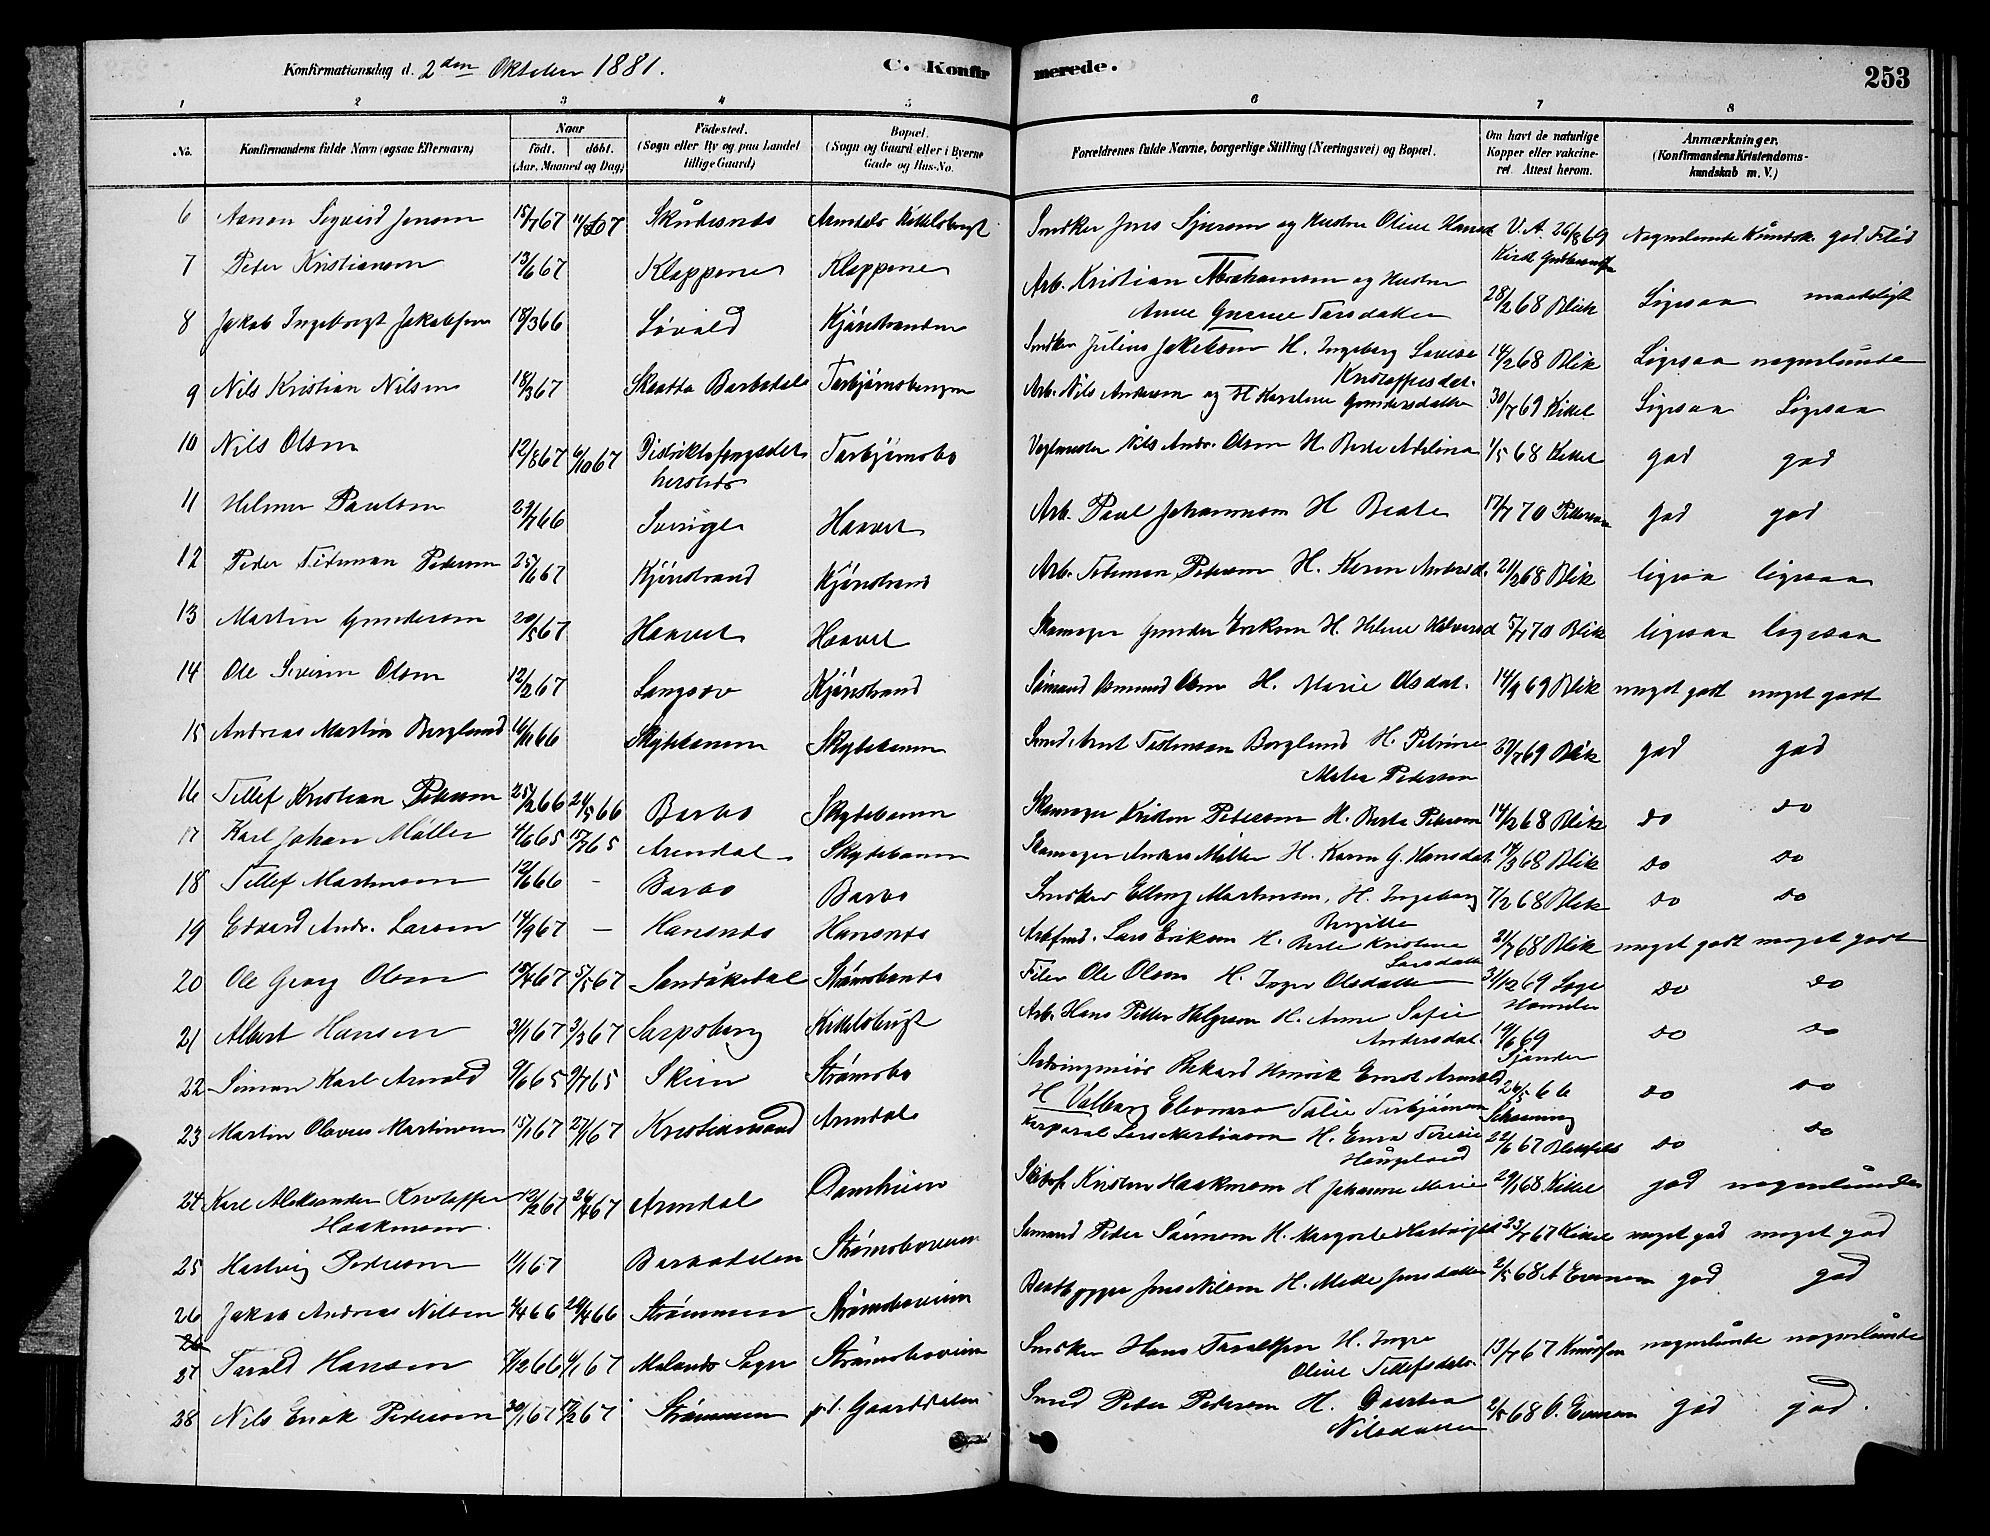 Konfirmationsdag d. 2den Oktober 1881. C. Konfirmerede. 253
1 2 3 4 5 6 7 8
No. Konfirmandens fulde Navn (ogsaa Efternavn) Naar födt. döbt. (Aar, Maaned og Dag) Födested. (Sogn eller By og paa Landet tillige Gaard) Bopæl. (Sogn og Gaard eller i Byerne Gade og Hus-No. Forældrenes fulde Navne, borgerlige Stilling (Næringsvei) og Bopæl. Om havt de naturlige Kopper eller vakcineret. Attest herom. Anmærkninger. (Konfirmandens Kristendomskundskab m. V.)
6 Aanon Sigvard Jensen 15/7 67 11/8 67 Skudesnes Arendals Kittelsbugt Snedker Jens Hustru Oline V. A. 26/8 69 Nogenlunde Kundsk. god Flid
7 Peder Kristiansen 13/6 67 Kloppene Kloppene Arb. Kristian Abrahamsen og Hustru
Anne Gurine Larsdatter 28/2 68 Blik Ligesaa maadeligt
8 Jakob Ingebregt Jakobsen 18/3 66 Løvold Kjønstranden Snedker Julius Jakobsen H. Ingeborg Lovise
Kristoffersdat. 14/2 68 Blik Ligesaa nogenlunde
9 Nils Kristian Nilsen 18/3 67 Skaatta Barbodale Torbjørnsbergen Arb. Nils Andersen og H Karoline Gundersdatter 30/7 69 Kittel Ligesaa Ligesaa
10 Nils Olsen 12/8 67 6/10 67 Torbjørnsbo Vagtmester Nils Andr. Olsen H. Berte Adelina 1/5 68 Kittel god god
11 Hilmer Paulsen 29/7 66 Sverige Haavet Arb. Paul Johannesen H Beate 17/7 70 Pettersen god god
12 Peder Tideman Pedersen 25/6 67 Kjønstrand Kjønstrand Arb. Tideman Pedersen H. Karen Andersd. 21/2 68 Blik ligesaa ligesaa
13 Martin Gundersen 20/5 67 Haavet Haavet Skomager Gunder Eriksen H. Helene Halvorsd 5/7 70 Blik ligesaa ligesaa
14 Ole Severin Olsen 12/2 67 Langsæv Kjønstrand Sømand Osmund Olsen H. Marie Olsdat. 14/9 69 Blik meget godt meget godt
15 Andreas Martin Berglund 16/11 66 Skytebanen Skytebanen Smed Berglund H. Petrine
Malea Pedersen 29/7 69 Blik god god
16 Tellef Kristian Petersen 25/2 66 21/5 66 Barbo Skytebanen Skomager Kristen Petersen H. Berte Petersen 14/12 68 Blik do do
17 Karl Johan Møller 4/6 65 15/7 65 Arendal Skytebanen Skomager Anders Møller H. Karen G. Hansdat. 18/3 68 Blik do do
18 Tellef Martinsen 12/6 66 — Barbo Barbo Snedker Elling Martinsen, H. Ingeborg
Birgitte 7/2 68 Blik do do
19 Edvard Andr. Larsen 14/9 67 — Hansnes Hansnes Lars Eriksen H. Berte Kristine
Larsdatter 21/7 68 Blik meget godt meget godt
20 Ole Georg Olsen 15/4 67 5/5 67 Sandøkedal Strømsbones Filer Ole Olsen H. Inger Olsdatter 31/12 69 do do
21 Albert Hansen 31/1 67 3/3 67 Sarpsborg Kittelsbugt Arb. Hans Petter Helgesen H. Anne Sofie
Andersdat. 19/6 69 do do
22 Simon Karl Arnold 9/6 65 9/7 65 Skien Strømsbo Rikard Henrik Ernst Arnold
H Valborg Eleonora Talie Torbjørnsen 26/5 66 do do
23 Martin Olavus Martinsen 15/1 67 27/1 67 Kristiansand Arendal Korporal Lars Martinsen H. Emma Teresie
Haugeland 22/6 67 do do
24 Karl Aleksander Kristoffer
Haakensen 12/2 67 24/4 67 Arendal Kristen Haakensen H Johanne Marie 29/1 68 Kittel god nogenlunde
25 Hartvig Pedersen 11/1 67 Barbodalen Strømsboveien Sømand Peder Sørensen H. Margrete Hartvigsd 23/7 67 Kittel meget god meget god
26 Jakob Andreas Nilsen 4/4 66 29/4 66 Strømmen Strømsboveien Baadbygger Jens Nilsen H. Mette Jensdatter 2/5 68 A Evensen god god
27 Tarald Hansen 7/12 66 6/1 67 Molands Sogn Strømsboveien Snedker Hans Taraldsen H. Inger
Oline Tellefsdat. 13/7 67 Knudsen nogenlunde nogenlunde
28 Nils Enok Pedersen 30/1 67 17/2 67 Strømmen p. t. Gaarddalen Smed Peder Pedersen H.
Nilsdatter 2/5 68 O. Evensen god god.